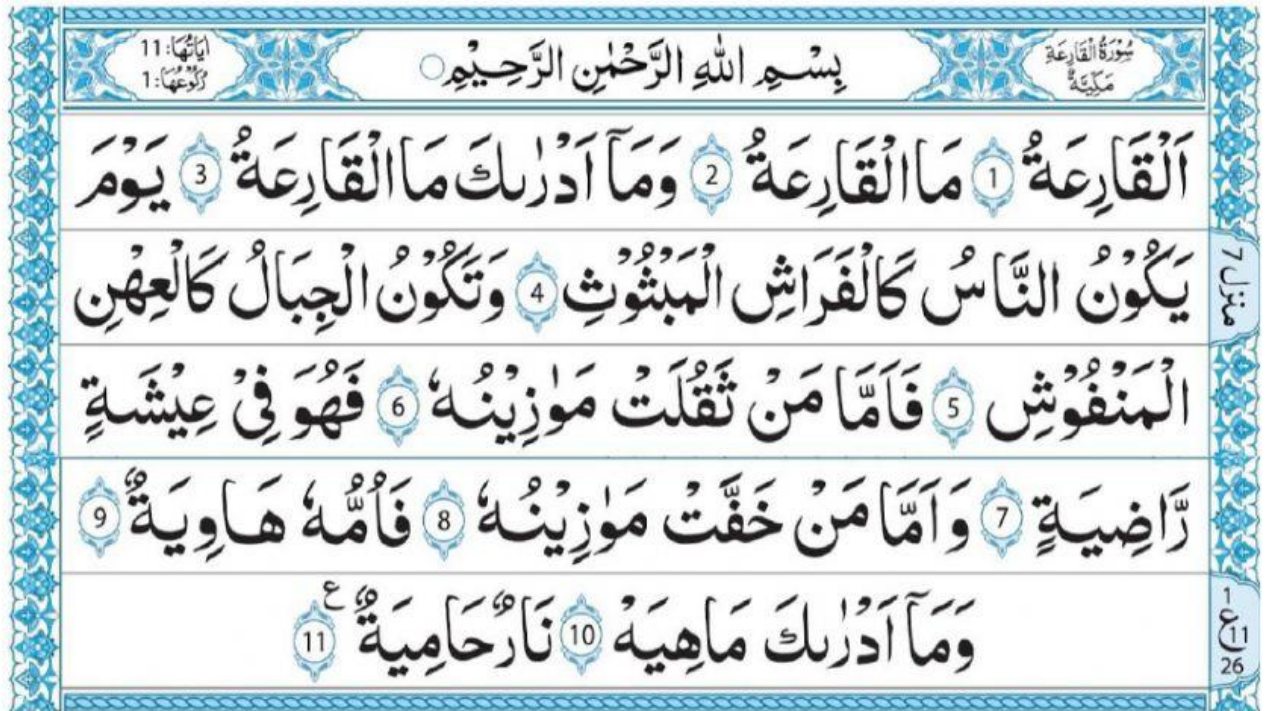 سُوْرَةُ الْقَارِعَةِ
مَكِّيَّةٌ
بِسْمِ اللهِ الرَّحْمٰنِ الرَّحِيْمِ
اٰيَاتُهَا: 11
رُكُوْعُهَا: 1
اَلْقَارِعَةُ 1 مَا الْقَارِعَةُ 2 وَمَآ اَدْرٰىكَ مَا الْقَارِعَةُ 3 يَوْمَ
يَكُوْنُ النَّاسُ كَالْفَرَاشِ الْمَبْثُوْثِ 4 وَتَكُوْنُ الْجِبَالُ كَالْعِهْنِ
منزل 7
الْمَنْفُوْشِ 5 فَاَمَّا مَنْ ثَقُلَتْ مَوٰزِيْنُهٗ 6 فَهُوَ فِيْ عِيْشَةٍ
رَّاضِيَةٍ 7 وَاَمَّا مَنْ خَفَّتْ مَوٰزِيْنُهٗ 8 فَاُمُّهٗ هَاوِيَةٌ 9
وَمَآ اَدْرٰىكَ مَاهِيَهْ 10 نَارٌ حَامِيَةٌ ع 11
1
ع 11
26